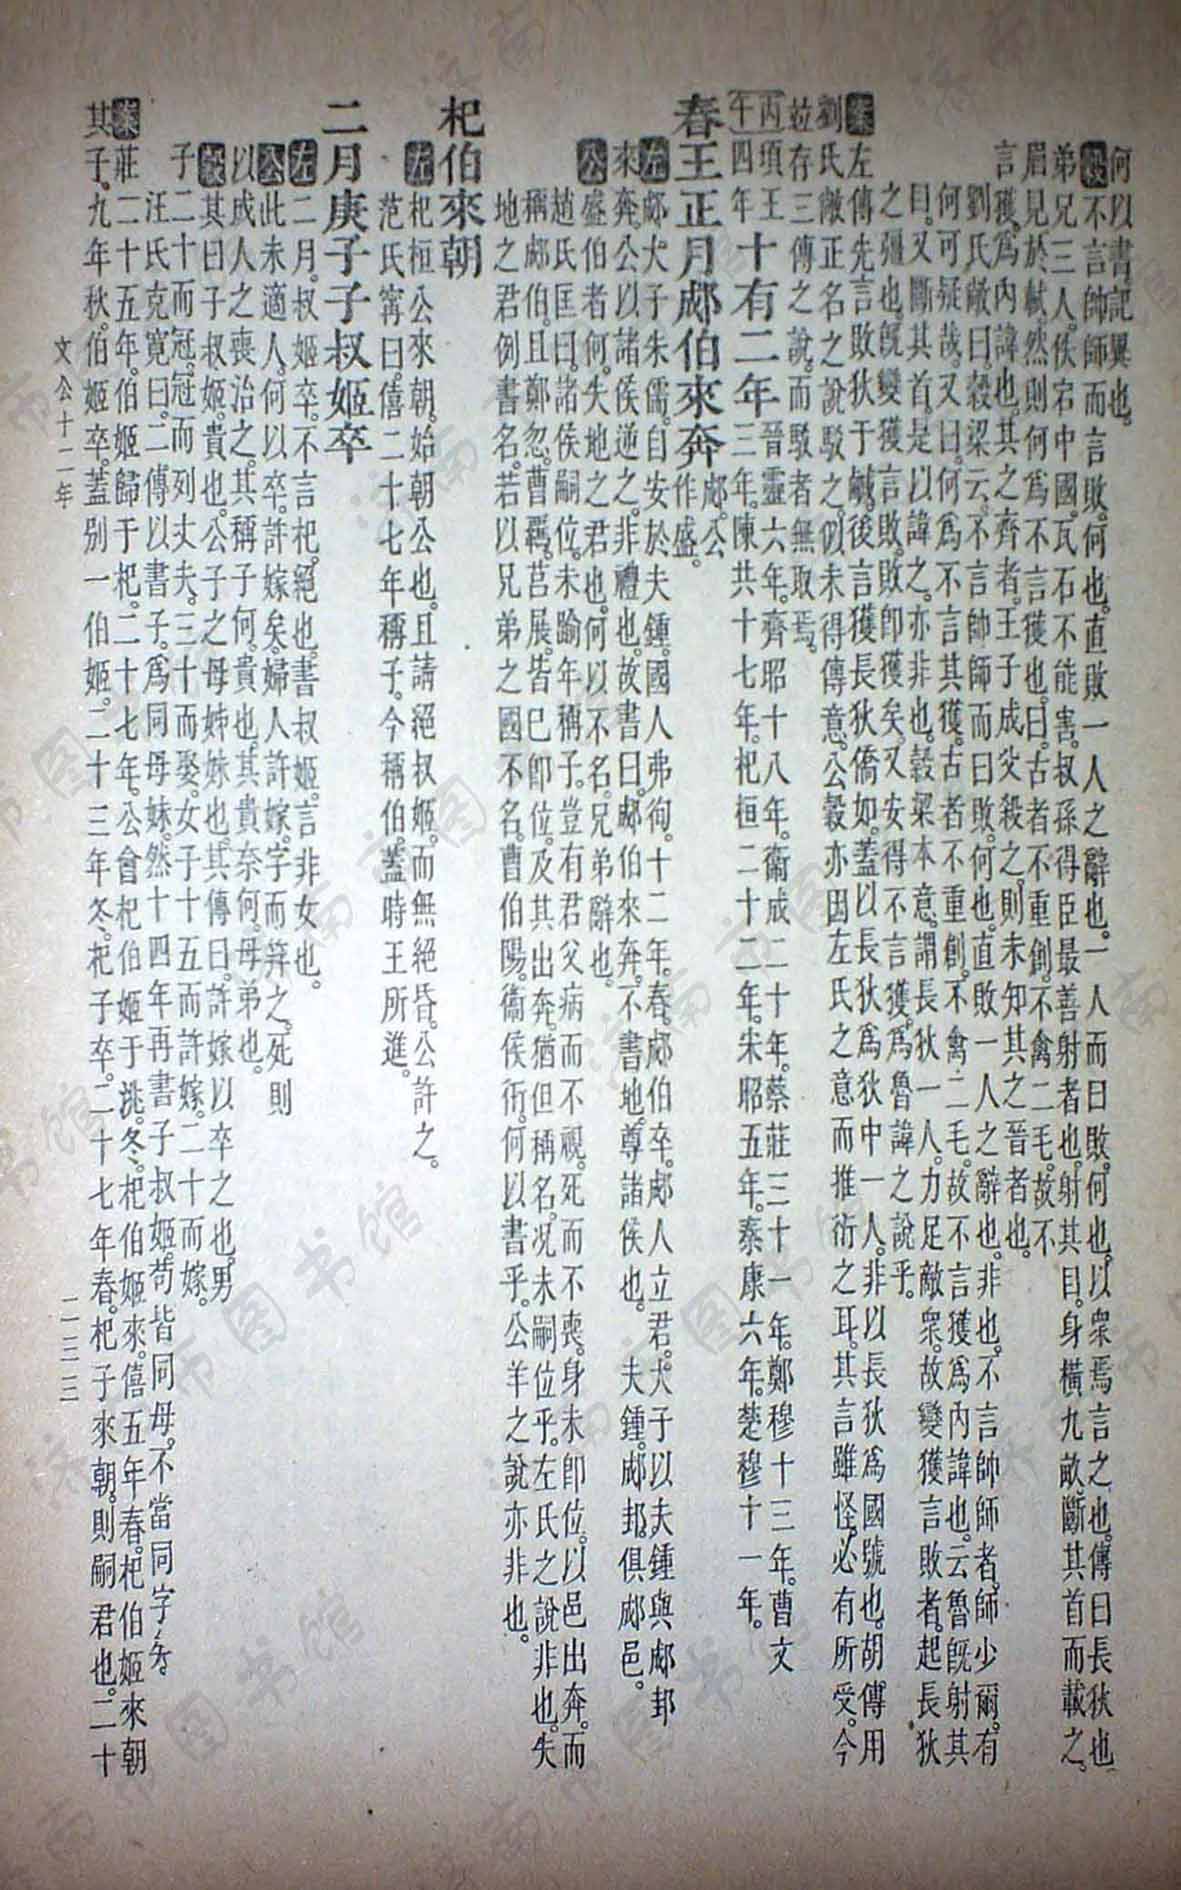 何以書。記異也。
穀不言帥師而言敗。何也。直敗一人之辭也。一人而曰敗。何也。以衆焉言之也。傳曰長狄也
弟兄三人。佚宕中國。瓦石不能害。叔孫得臣最善射者也。射其目。身橫九畝。斷其首而載之。
眉見於軾。然則何爲不言獲也。曰。古者不重創。不禽二毛。故不
言獲。爲內諱也。其之齊者。王子成父殺之。則未知其之晉者也。
劉氏敞曰。穀梁云。不言帥師而曰敗。何也。直敗一人之辭也。非也。不言帥師者。師少爾。有
何可疑哉。又曰。何爲不言其獲。古者不重創。不禽二毛。故不言獲。爲內諱也。云魯旣射其
目。又斷其首。是以諱之。亦非也。穀梁本意。謂長狄一人。力足敵衆。故變獲言敗者。起長狄
之彊也。旣變獲言敗。敗卽獲矣。又安得不言獲。爲魯諱之說乎。
案左傳先言敗狄于鹹。後言獲長狄僑如。蓋以長狄爲狄中一人。非以長狄爲國號也。胡傳用
劉氏敞正名之說駁之。似未得傳意。公穀亦因左氏之意而推衍之耳。其言雖怪。必有所受。今
並存三傳之說。而駁者無取焉。
丙午 頃王四年 十有二年 晉靈六年。齊昭十八年。衞成二十年。蔡莊三十一年。鄭穆十三年。曹文
三年。陳共十七年。杞桓二十二年。宋昭五年。秦康六年。楚穆十一年。
春王正月郕伯來奔 郕。公作盛。
左郕大子朱儒。自安於夫鍾。國人弗徇。十二年。春。郕伯卒。郕人立君。大子以夫鍾與郕邽
來奔。公以諸侯逆之。非禮也。故書曰。郕伯來奔。不書地。尊諸侯也。 夫鍾。郕邽。俱郕邑。
公盛伯者何。失地之君也。何以不名。兄弟辭也。
趙氏匡曰。諸侯嗣位。未踰年稱子。豈有君父病而不視。死而不喪。身未卽位。以邑出奔。而
稱郕伯。且鄭忽。曹羈。莒展。皆已卽位。及其出奔。猶但稱名。况未嗣位乎。左氏之說非也。失
地之君例書名。若以兄弟之國不名。曹伯陽。衞侯衎。何以書乎。公羊之說亦非也。
杞伯來朝
左杞桓公來朝。始朝公也。且請絕叔姬。而無絕昏。公許之。
范氏甯曰。僖二十七年稱子。今稱伯。蓋時王所進。
二月庚子子叔姬卒
左二月。叔姬卒。不言杞。絕也。書叔姬。言非女也。
公此未適人。何以卒。許嫁矣。婦人許嫁。字而笄之。死則
以成人之喪治之。其稱子何。貴也。其貴奈何。母弟也。
穀其曰子叔姬。貴也。公子之母姊妹也。其傳曰。許嫁以卒之也。男
子二十而冠。冠而列丈夫。三十而娶。女子十五而許嫁。二十而嫁。
汪氏克寬曰。二傳以書子。爲同母妹。然十四年再書子叔姬。苟皆同母。不當同字矣。
案莊二十五年。伯姬歸于杞。二十七年。公會杞伯姬于洮。冬。杞伯姬來。僖五年春。杞伯姬來朝
其子。九年秋。伯姬卒。蓋別一伯姬。二十三年冬。杞子卒。二十七年春。杞子來朝。則嗣君也。二十
文公十二年
二三三